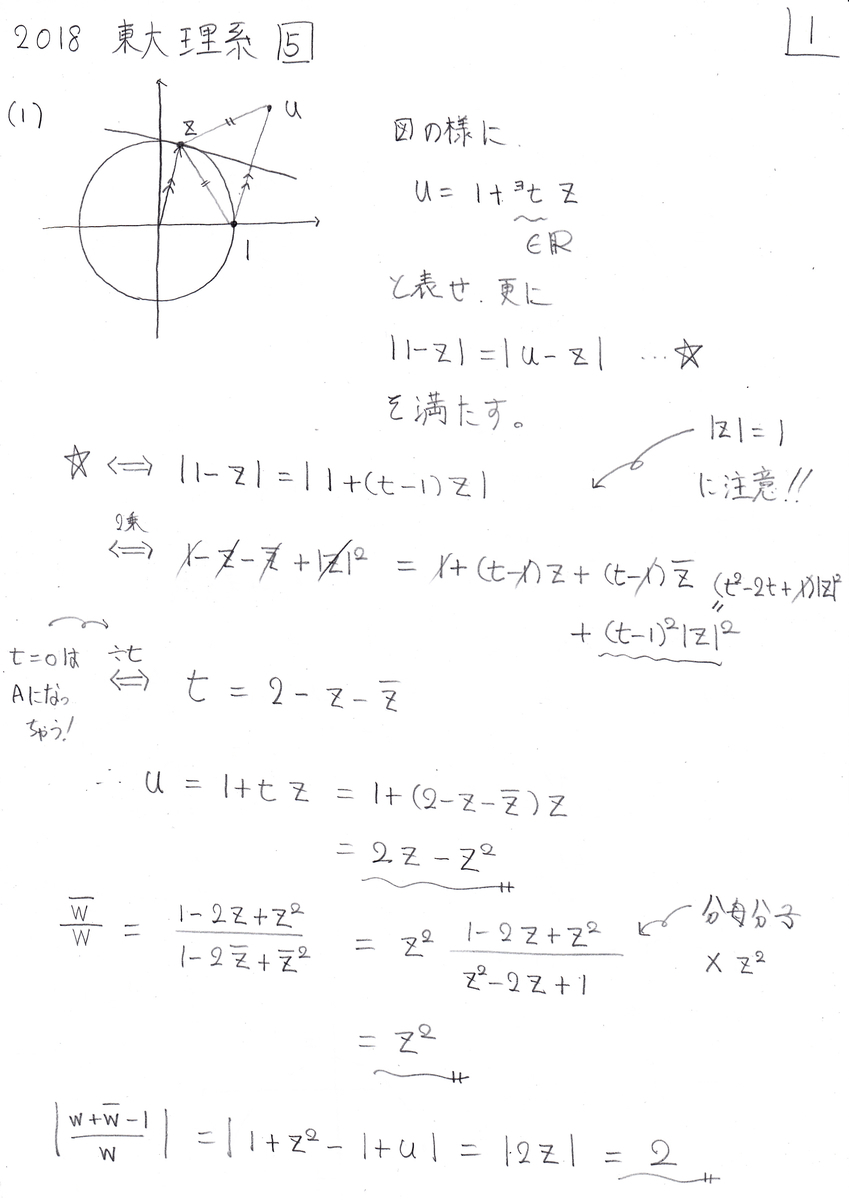 2018 東大理系 5
1
(1)
z
u
1
図の様に
u = 1 + ∃t z
∈ℝ
と表せ、更に
|1-z| = |u-z| …☆
を満たす。
|z| = 1
に注意!!
☆ ⇔ |1-z| = |1+(t-1)z|
2乗
⇔ 1 - z - z̄ + |z|² = 1 + (t-1)z + (t-1)z̄
(t²-2t+1)|z|²
〃
+ (t-1)²|z|²
t=0は
Aになっ
ちゃう!
÷t
⇔ t = 2 - z - z̄
∴ u = 1 + t z = 1 + (2-z-z̄)z
= 2z - z²
w̄/w = (1-2z+z²)/(1-2z̄+z̄²) = z² (1-2z+z²)/(z²-2z+1)
分母分子
× z²
= z²
|(w+w̄-1)/w| = |1+z²-1+u| = |2z| = 2